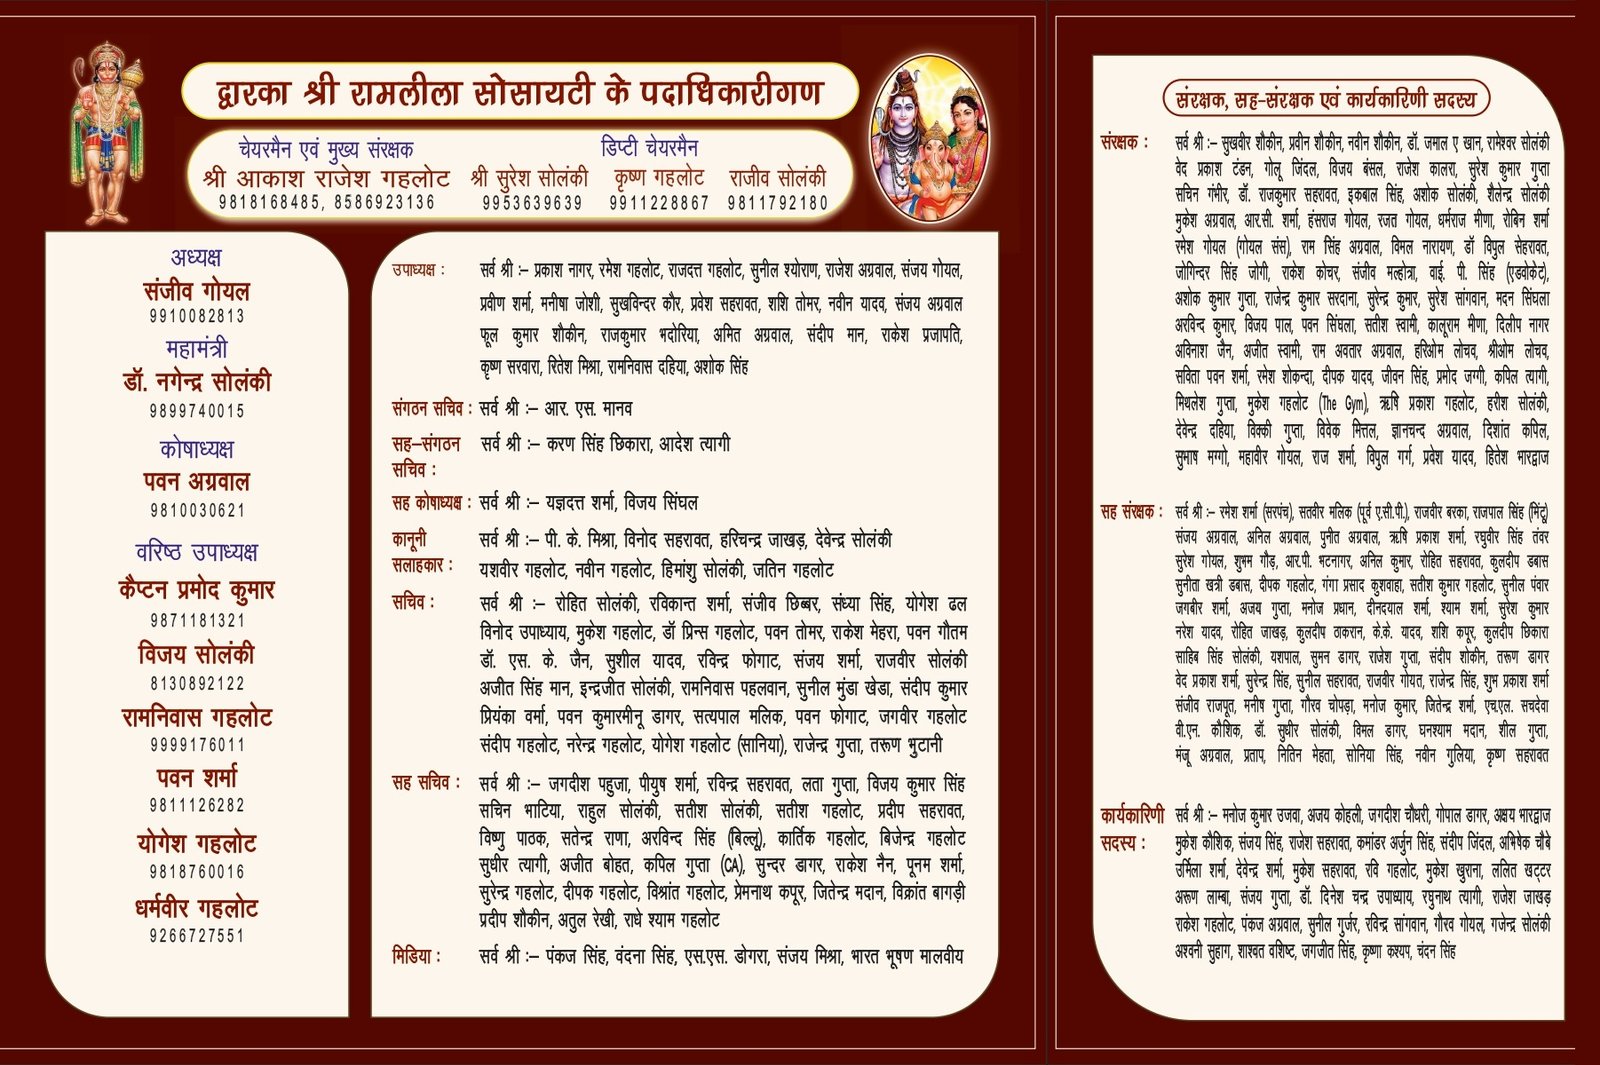 द्वारका श्री रामलीला सोसायटी के पदाधिकारीगण
चेयरमैन एवं मुख्य संरक्षक
डिप्टी चेयरमैन
श्री आकाश राजेश गहलोट
श्री सुरेश सोलंकी
कृष्ण गहलोट
राजीव सोलंकी
9818168485, 8586923136
9953639639
9911228867
9811792180
अध्यक्ष
संजीव गोयल
9910082813
महामंत्री
डॉ. नगेन्द्र सोलंकी
9899740015
कोषाध्यक्ष
पवन अग्रवाल
9810030621
वरिष्ठ उपाध्यक्ष
कैप्टन प्रमोद कुमार
9871181321
विजय सोलंकी
8130892122
रामनिवास गहलोट
9999176011
पवन शर्मा
9811126282
योगेश गहलोट
9818760016
धर्मवीर गहलोट
9266727551
उपाध्यक्ष : सर्व श्री :– प्रकाश नागर, रमेश गहलोट, राजदत्त गहलोट, सुनील श्योराण, राजेश अग्रवाल, संजय गोयल,
प्रवीण शर्मा, मनीषा जोशी, सुखविन्दर कौर, प्रवेश सहरावत, शशि तोमर, नवीन यादव, संजय अग्रवाल
फूल कुमार शौकीन, राजकुमार भदोरिया, अमित अग्रवाल, संदीप मान, राकेश प्रजापति,
कृष्ण सरवारा, रितेश मिश्रा, रामनिवास दहिया, अशोक सिंह
संगठन सचिव : सर्व श्री :– आर. एस. मानव
सह–संगठन सर्व श्री :– करण सिंह छिकारा, आदेश त्यागी
सचिव :
सह कोषाध्यक्ष : सर्व श्री :– यज्ञदत्त शर्मा, विजय सिंघल
कानूनी सर्व श्री :– पी. के. मिश्रा, विनोद सहरावत, हरिचन्द्र जाखड़, देवेन्द्र सोलंकी
सलाहकार : यशवीर गहलोट, नवीन गहलोट, हिमांशु सोलंकी, जतिन गहलोट
सचिव : सर्व श्री :– रोहित सोलंकी, रविकान्त शर्मा, संजीव छिब्बर, संध्या सिंह, योगेश ढल
विनोद उपाध्याय, मुकेश गहलोट, डॉ प्रिन्स गहलोट, पवन तोमर, राकेश मेहरा, पवन गौतम
डॉ. एस. के. जैन, सुशील यादव, रविन्द्र फोगाट, संजय शर्मा, राजवीर सोलंकी
अजीत सिंह मान, इन्द्रजीत सोलंकी, रामनिवास पहलवान, सुनील मुंडा खेडा, संदीप कुमार
प्रियंका वर्मा, पवन कुमारमीनू डागर, सत्यपाल मलिक, पवन फोगाट, जगवीर गहलोट
संदीप गहलोट, नरेन्द्र गहलोट, योगेश गहलोट (सानिया), राजेन्द्र गुप्ता, तरूण भुटानी
सह सचिव : सर्व श्री :– जगदीश पहुजा, पीयुष शर्मा, रविन्द्र सहरावत, लता गुप्ता, विजय कुमार सिंह
सचिन भाटिया, राहुल सोलंकी, सतीश सोलंकी, सतीश गहलोट, प्रदीप सहरावत,
विष्णु पाठक, सतेन्द्र राणा, अरविन्द सिंह (बिल्लू), कार्तिक गहलोट, बिजेन्द्र गहलोट
सुधीर त्यागी, अजीत बोहत, कपिल गुप्ता (CA), सुन्दर डागर, राकेश नैन, पूनम शर्मा,
सुरेन्द्र गहलोट, दीपक गहलोट, विश्रांत गहलोट, प्रेमनाथ कपूर, जितेन्द्र मदान, विक्रांत बागड़ी
प्रदीप शौकीन, अतुल रेखी, राधे श्याम गहलोट
मिडिया : सर्व श्री :– पंकज सिंह, वंदना सिंह, एस.एस. डोगरा, संजय मिश्रा, भारत भूषण मालवीय
संरक्षक, सह-संरक्षक एवं कार्यकारिणी सदस्य
संरक्षक : सर्व श्री :– सुखवीर शौकीन, प्रवीन शौकीन, नवीन शौकीन, डॉ. जमाल ए खान, रामेश्वर सोलंकी
वेद प्रकाश टंडन, गोलू जिंदल, विजय बंसल, राजेश कालरा, सुरेश कुमार गुप्ता
सचिन गंभीर, डॉ. राजकुमार सहरावत, इकबाल सिंह, अशोक सोलंकी, शैलेन्द्र सोलंकी
मुकेश अग्रवाल, आर.सी. शर्मा, हंसराज गोयल, रजत गोयल, धर्मराज मीणा, रोबिन शर्मा
रमेश गोयल (गोयल संस), राम सिंह अग्रवाल, विमल नारायण, डॉ विपुल सेहरावत,
जोगिन्दर सिंह जोगी, राकेश कोचर, संजीव मल्होत्रा, वाई. पी. सिंह (एडवोकेट),
अशोक कुमार गुप्ता, राजेन्द्र कुमार सरदाना, सुरेन्द्र कुमार, सुरेश सांगवान, मदन सिंघला
अरविन्द कुमार, विजय पाल, पवन सिंघला, सतीश स्वामी, कालूराम मीणा, दिलीप नागर
अविनाश जैन, अजीत स्वामी, राम अवतार अग्रवाल, हरिओम लोचव, श्रीओम लोचव,
सविता पवन शर्मा, रमेश शोकन्दा, दीपक यादव, जीवन सिंह, प्रमोद जग्गी, कपिल त्यागी,
मिथलेश गुप्ता, मुकेश गहलोट (The Gym), ऋषि प्रकाश गहलोट, हरीश सोलंकी,
देवेन्द्र दहिया, विक्की गुप्ता, विवेक मित्तल, ज्ञानचन्द अग्रवाल, दिशांत कपिल,
सुभाष मग्गो, महावीर गोयल, राज शर्मा, विपुल गर्ग, प्रवेश यादव, हितेश भारद्वाज
सह संरक्षक : सर्व श्री :– रमेश शर्मा (सरपंच), सतवीर मलिक (पूर्व ए.सी.पी.), राजवीर बरका, राजपाल सिंह (मिंटू)
संजय अग्रवाल, अनिल अग्रवाल, पुनीत अग्रवाल, ऋषि प्रकाश शर्मा, रघुवीर सिंह तंवर
सुरेश गोयल, शुभम गौड़, आर.पी. भटनागर, अनिल कुमार, रोहित सहरावत, कुलदीप डबास
सुनीता खत्री डबास, दीपक गहलोट, गंगा प्रसाद कुशवाहा, सतीश कुमार गहलोट, सुनील पंवार
जगबीर शर्मा, अजय गुप्ता, मनोज प्रधान, दीनदयाल शर्मा, श्याम शर्मा, सुरेश कुमार
नरेश यादव, रोहित जाखड़, कुलदीप ठाकरान, के.के. यादव, शशि कपूर, कुलदीप छिकारा
साहिब सिंह सोलंकी, यशपाल, सुमन डागर, राजेश गुप्ता, संदीप शोकीन, तरूण डागर
वेद प्रकाश शर्मा, सुरेन्द्र सिंह, सुनील सहरावत, राजवीर गोयत, राजेन्द्र सिंह, शुभ प्रकाश शर्मा
संजीव राजपूत, मनीष गुप्ता, गौरव चोपड़ा, मनोज कुमार, जितेन्द्र शर्मा, एच.एल. सचदेवा
वी.एन. कौशिक, डॉ. सुधीर सोलंकी, विमल डागर, घनश्याम मदान, शील गुप्ता,
मंजू अग्रवाल, प्रताप, नितिन मेहता, सोनिया सिंह, नवीन गुलिया, कृष्ण सहरावत
कार्यकारिणी सर्व श्री :– मनोज कुमार उजवा, अजय कोहली, जगदीश चौधरी, गोपाल डागर, अक्षय भारद्वाज
सदस्य : मुकेश कौशिक, संजय सिंह, राजेश सहरावत, कमांडर अर्जुन सिंह, संदीप जिंदल, अभिषेक चौबे
उर्मिला शर्मा, देवेन्द्र शर्मा, मुकेश सहरावत, रवि गहलोट, मुकेश खुराना, ललित खट्टर
अरूण लाम्बा, संजय गुप्ता, डॉ. दिनेश चन्द्र उपाध्याय, रघुनाथ त्यागी, राजेश जाखड़
राकेश गहलोट, पंकज अग्रवाल, सुनील गुर्जर, रविन्द्र सांगवान, गौरव गोयल, गजेन्द्र सोलंकी
अश्वनी सुहाग, शाश्वत वशिष्ट, जगजीत सिंह, कृष्णा कश्यप, चंदन सिंह